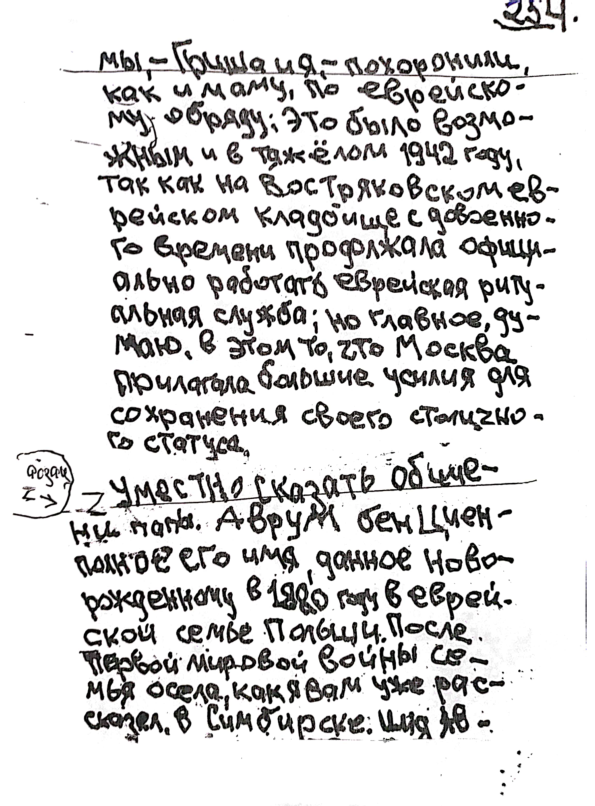 254.
мы,- Гриша и я,- похоронили,
как и маму, по еврейско-
му, обряду; Это было возмо-
жным и в тяжёлом 1942 году,
так как на Востряковском ев-
рейском кладбище с довоенно-
го времени продолжала офици-
ально работать еврейская риту-
альная служба; но главное, ду-
маю, в этом то, что Москва
прилагала большие усилия для
сохранения своего столично-
го статуса.
абзац
Z → Z Уместно сказать об име-
ни папы. Аврум бен Циен-
полное его имя, данное ново-
рожденному в 1880 году в еврей-
ской семье Польши. После
Первой мировой войны се-
мья осела, как я вам уже рас-
сказал, в Симбирске. Имя Ав-